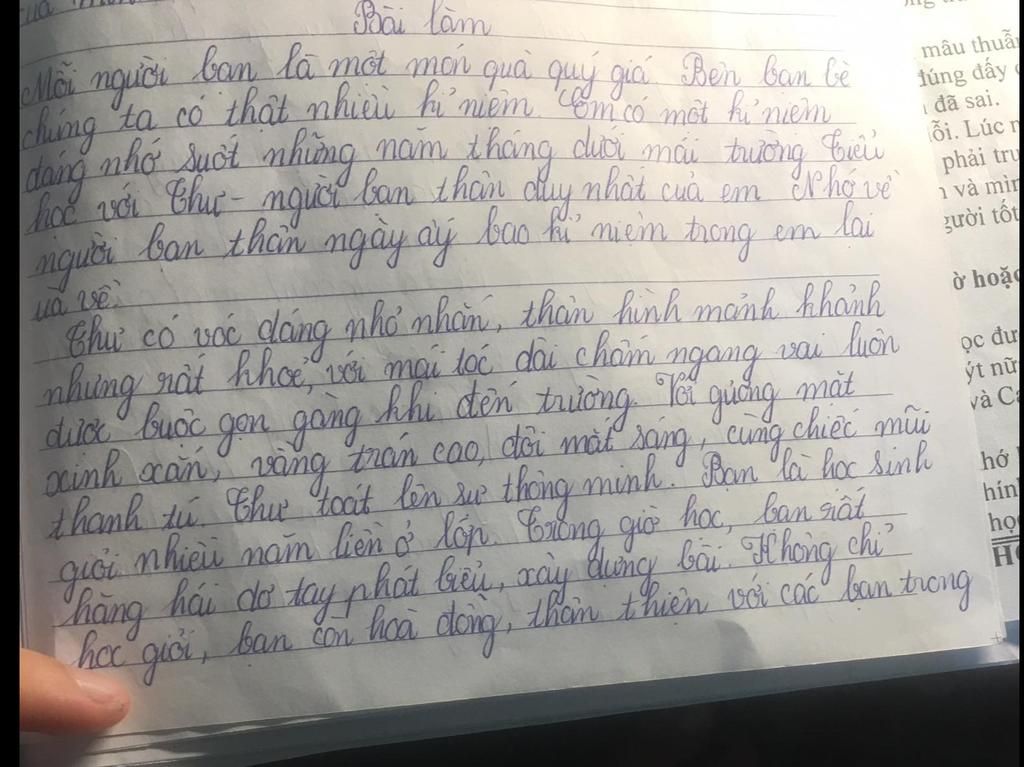 Bài làm
Mỗi người bạn là một món quà quý giá. Bên bạn bè
chúng ta có thật nhiều kỉ niệm. Em có một kỉ niệm
đáng nhớ suốt những năm tháng dưới mái trường Tiểu
học với Thư - người bạn thân duy nhất của em. Nhớ về
người bạn thân ngày ấy bao kỉ niệm trong em lại
ùa về.
Thư có vóc dáng nhỏ nhắn, thân hình mảnh khảnh
nhưng rất khoẻ, với mái tóc dài chấm ngang vai luôn
được buộc gọn gàng khi đến trường. Với gương mặt
xinh xắn, vầng trán cao, đôi mắt sáng, cùng chiếc mũi
thanh tú. Thư toát lên sự thông minh. Bạn là học sinh
giỏi nhiều năm liền ở lớp. Trong giờ học, bạn rất
hăng hái dơ tay phát biểu, xây dựng bài. Không chỉ
học giỏi, bạn còn hoà đồng, thân thiện với các bạn trong
mâu thuẫn
đúng đấy
đã sai.
lỗi. Lúc
phải
và
người tốt
ờ hoặc
ọc
ýt
và
hớ
học